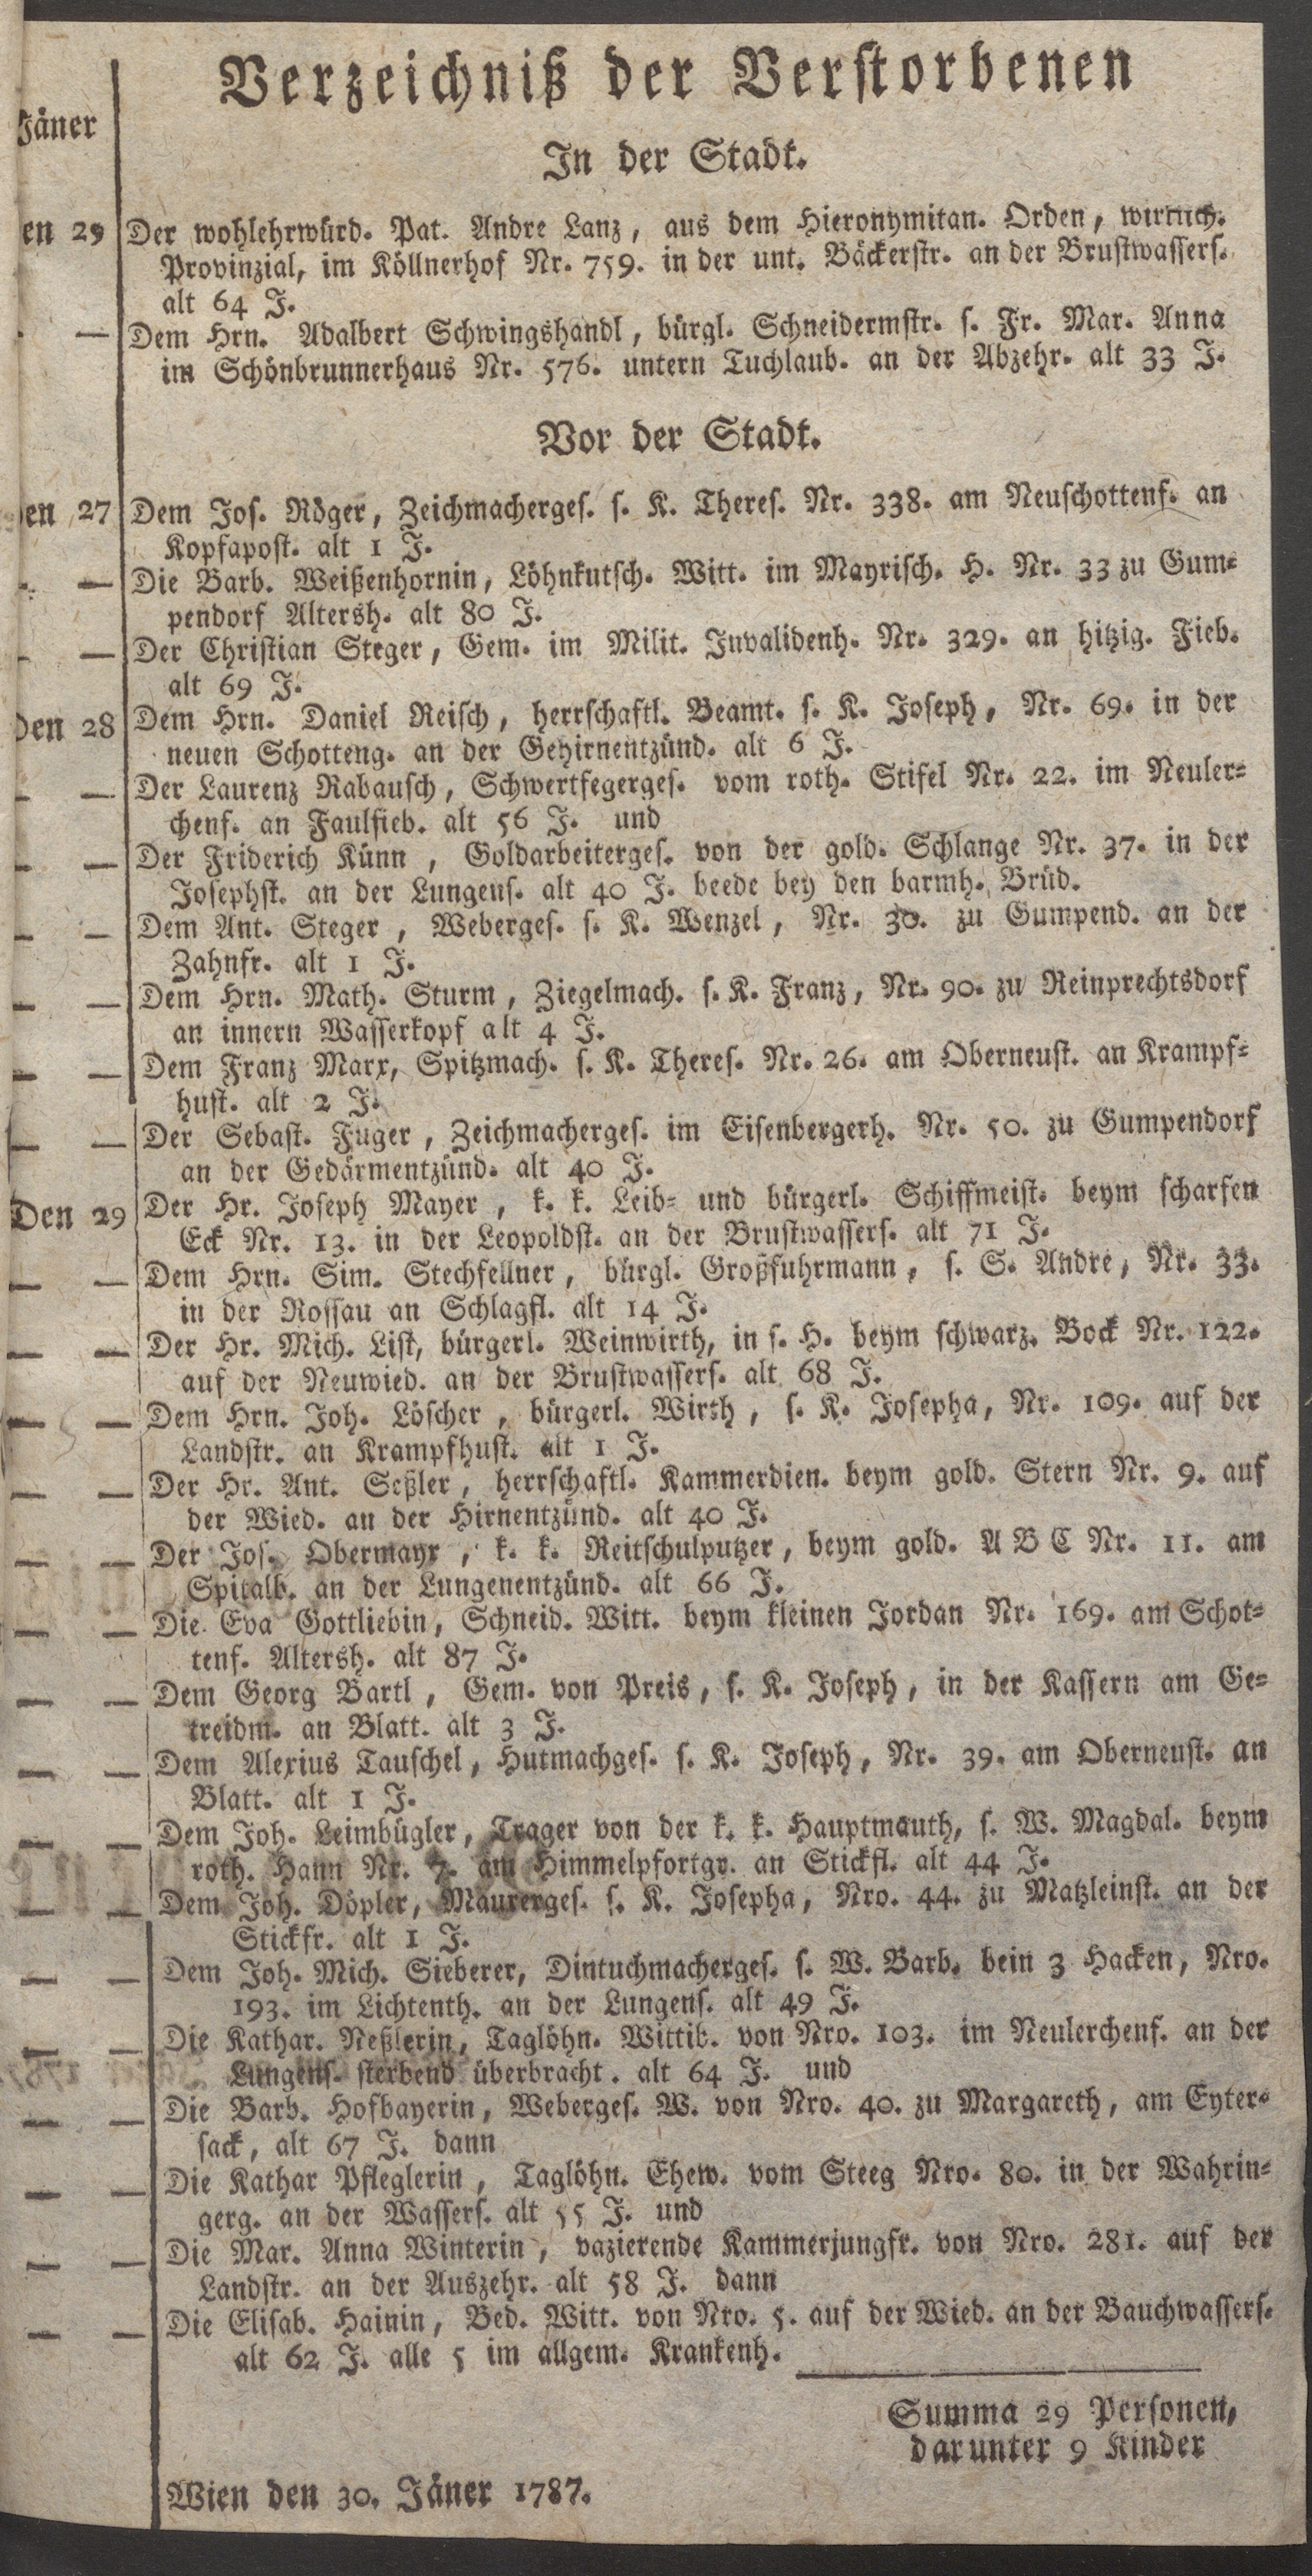 Verzeichniß der Verstorbenen
Jäner
In der Stadt.
en 29 Der wohlehrwürd. Pat. Andre Lanz, aus dem Hieronymitan. Orden, wirklich.
Provinzial, im Köllnerhof Nr. 759. in der unt. Bäckerstr. an der Brustwassers.
alt 64 J.
— Dem Hrn. Adalbert Schwingshandl, bürgl. Schneidermstr. s. Fr. Mar. Anna
im Schönbrunnerhaus Nr. 576. untern Tuchlaub. an der Abzehr. alt 33 J.
Vor der Stadt.
en 27 Dem Jos. Röger, Zeichmacherges. s. K. Theres. Nr. 338. am Neuschottenf. an
Kopfapost. alt 1 J.
— — Die Barb. Weißenhornin, Löhnkutsch. Witt. im Mayrisch. H. Nr. 33 zu Gum-
pendorf Altersh. alt 80 J.
— — Der Christian Steger, Gem. im Milit. Invalidenh. Nr. 329. an hitzig. Fieb.
alt 69 J.
Den 28 Dem Hrn. Daniel Reisch, herrschaftl. Beamt. s. K. Joseph, Nr. 69. in der
neuen Schotteng. an der Gehirnentzünd. alt 6 J.
— — Der Laurenz Rabausch, Schwertfegerges. vom roth. Stifel Nr. 22. im Neuler-
chenf. an Faulfieb. alt 56 J. und
— — Der Friderich Künn, Goldarbeiterges. von der gold. Schlange Nr. 37. in der
Josephst. an der Lungens. alt 40 J. beede bey den barmh. Brüd.
— — Dem Ant. Steger, Weberges. s. K. Wenzel, Nr. 30. zu Gumpend. an der
Zahnfr. alt 1 J.
— — Dem Hrn. Math. Sturm, Ziegelmach. s. K. Franz, Nr. 90. zu Reinprechtsdorf
an innern Wasserkopf alt 4 J.
— — Dem Franz Marx, Spitzmach. s. K. Theres. Nr. 26. am Oberneust. an Krampf-
hust. alt 2 J.
— — Der Sebast. Fuger, Zeichmacherges. im Eisenbergerh. Nr. 50. zu Gumpendorf
an der Gedärmentzünd. alt 40 J.
Den 29 Der Hr. Joseph Mayer, k. k. Leib- und bürgerl. Schiffmeist. beym scharfen
Eck Nr. 13. in der Leopoldst. an der Brustwassers. alt 71 J.
— — Dem Hrn. Sim. Stechfellner, bürgl. Großfuhrmann, s. S. Andre, Nr. 33.
in der Rossau an Schlagfl. alt 14 J.
— — Der Hr. Mich. List, bürgerl. Weinwirth, in s. H. beym schwarz. Bock Nr. 122.
auf der Neuwied. an der Brustwassers. alt 68 J.
— — Dem Hrn. Joh. Löscher, bürgerl. Wirth, s. K. Josepha, Nr. 109. auf der
Landstr. an Krampfhust. alt 1 J.
— — Der Hr. Ant. Seßler, herrschaftl. Kammerdien. beym gold. Stern Nr. 9. auf
der Wied. an der Hirnentzünd. alt 40 J.
— — Der Jos. Obermayr, k. k. Reitschulputzer, beym gold. A B C Nr. 11. am
Spitalb. an der Lungenentzünd. alt 66 J.
— — Die Eva Gottliebin, Schneid. Witt. beym kleinen Jordan Nr. 169. am Schot-
tenf. Altersh. alt 87 J.
— — Dem Georg Bartl, Gem. von Preis, s. K. Joseph, in der Kassern am Ge-
treidm. an Blatt. alt 3 J.
— — Dem Alexius Tauschel, Hutmachges. s. K. Joseph, Nr. 39. am Oberneust. an
Blatt. alt 1 J.
— — Dem Joh. Leimbügler, Trager von der k. k. Hauptmauth, s. W. Magdal. beym
roth. Hann Nr. 7. am Himmelpfortgr. an Stickfl. alt 44 J.
— — Dem Joh. Döpler, Maurerges. s. K. Josepha, Nro. 44. zu Matzleinst. an der
Stickfr. alt 1 J.
— — Dem Joh. Mich. Sieberer, Dintuchmacherges. s. W. Barb. bein 3 Hacken, Nro.
193. im Lichtenth. an der Lungens. alt 49 J.
— — Die Kathar. Neßlerin, Taglöhn. Wittib. von Nro. 103. im Neulerchenf. an der
Lungens. sterbend überbracht. alt 64 J. und
— — Die Barb. Hofbayerin, Weberges. W. von Nro. 40. zu Margareth, am Eyter-
sack, alt 67 J. dann
— — Die Kathar Pfleglerin, Taglöhn. Ehew. vom Steeg Nro. 80. in der Wahrin-
gerg. an der Wassers. alt 55 J. und
— — Die Mar. Anna Winterin, vazierende Kammerjungfr. von Nro. 281. auf der
Landstr. an der Auszehr. alt 58 J. dann
— — Die Elisab. Hainin, Bed. Witt. von Nro. 5. auf der Wied. an der Bauchwassers.
alt 62 J. alle 5 im allgem. Krankenh.
Summa 29 Personen,
darunter 9 Kinder
Wien den 30. Jäner 1787.